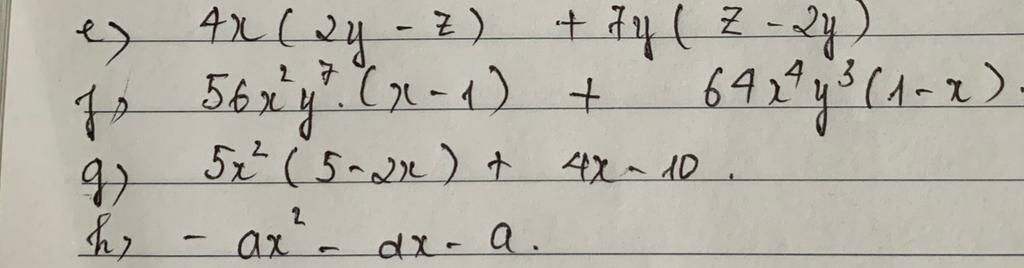 e) 4x(2y - z) + 7y(z - 2y)
f) 56x²y⁷.(x - 1) + 64x⁴y³(1 - x).
g) 5x²(5 - 2x) + 4x - 10.
h) - ax² - ax - a.